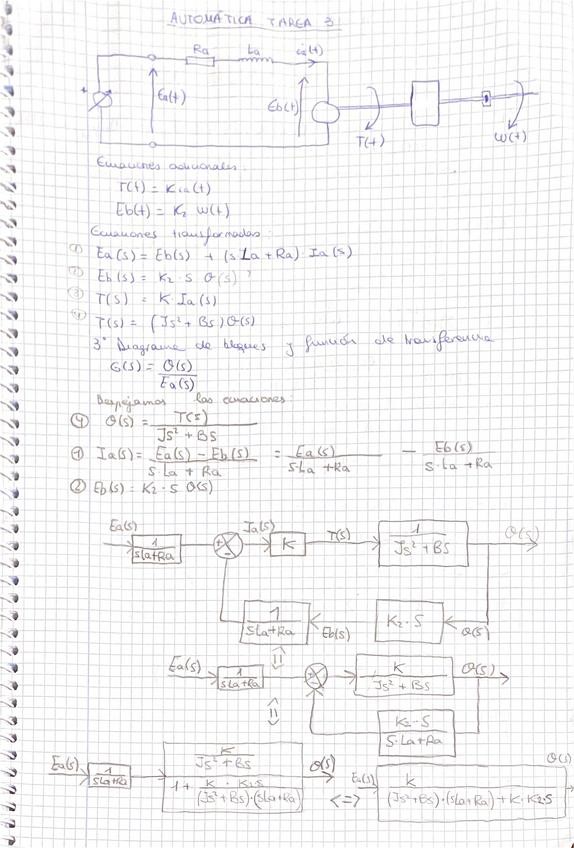 AUTOMÁTICA TAREA 3
Ra La ia(t)
+ Ea(t) Eb(t)
T(t) W(t)
Ecuaciones adicionales:
T(t) = K ia(t)
Eb(t) = K2 W(t)
Ecuaciones transformadas:
① Ea(s) = Eb(s) + (s La + Ra) Ia(s)
② Eb(s) = K2 · s θ(s)
③ T(s) = K · Ia(s)
④ T(s) = (Js² + Bs) θ(s)
3º Diagrama de bloques y función de transferencia
G(s) = θ(s) / Ea(s)
Despejamos las ecuaciones:
④ θ(s) = T(s) / Js² + Bs
① Ia(s) = Ea(s) - Eb(s) / s·La + Ra = Ea(s) / s·La + Ra - Eb(s) / s·La + Ra
② Eb(s) = K2 · s θ(s)
Ea(s) 1 / sLa+Ra + - Ia(s) K T(s) 1 / Js² + Bs θ(s)
1 / sLa+Ra Eb(s) K2 · s θ(s)
<=>
Ea(s) 1 / sLa+Ra + - K / Js² + Bs θ(s)
K2 · s / s·La+Ra
<=>
Ea(s) 1 / sLa+Ra K / Js² + Bs / 1 + K · K2s / (Js²+Bs)·(sLa+Ra) θ(s) <=> Ea(s) K / (Js²+Bs)·(sLa+Ra) + K·K2·s θ(s)